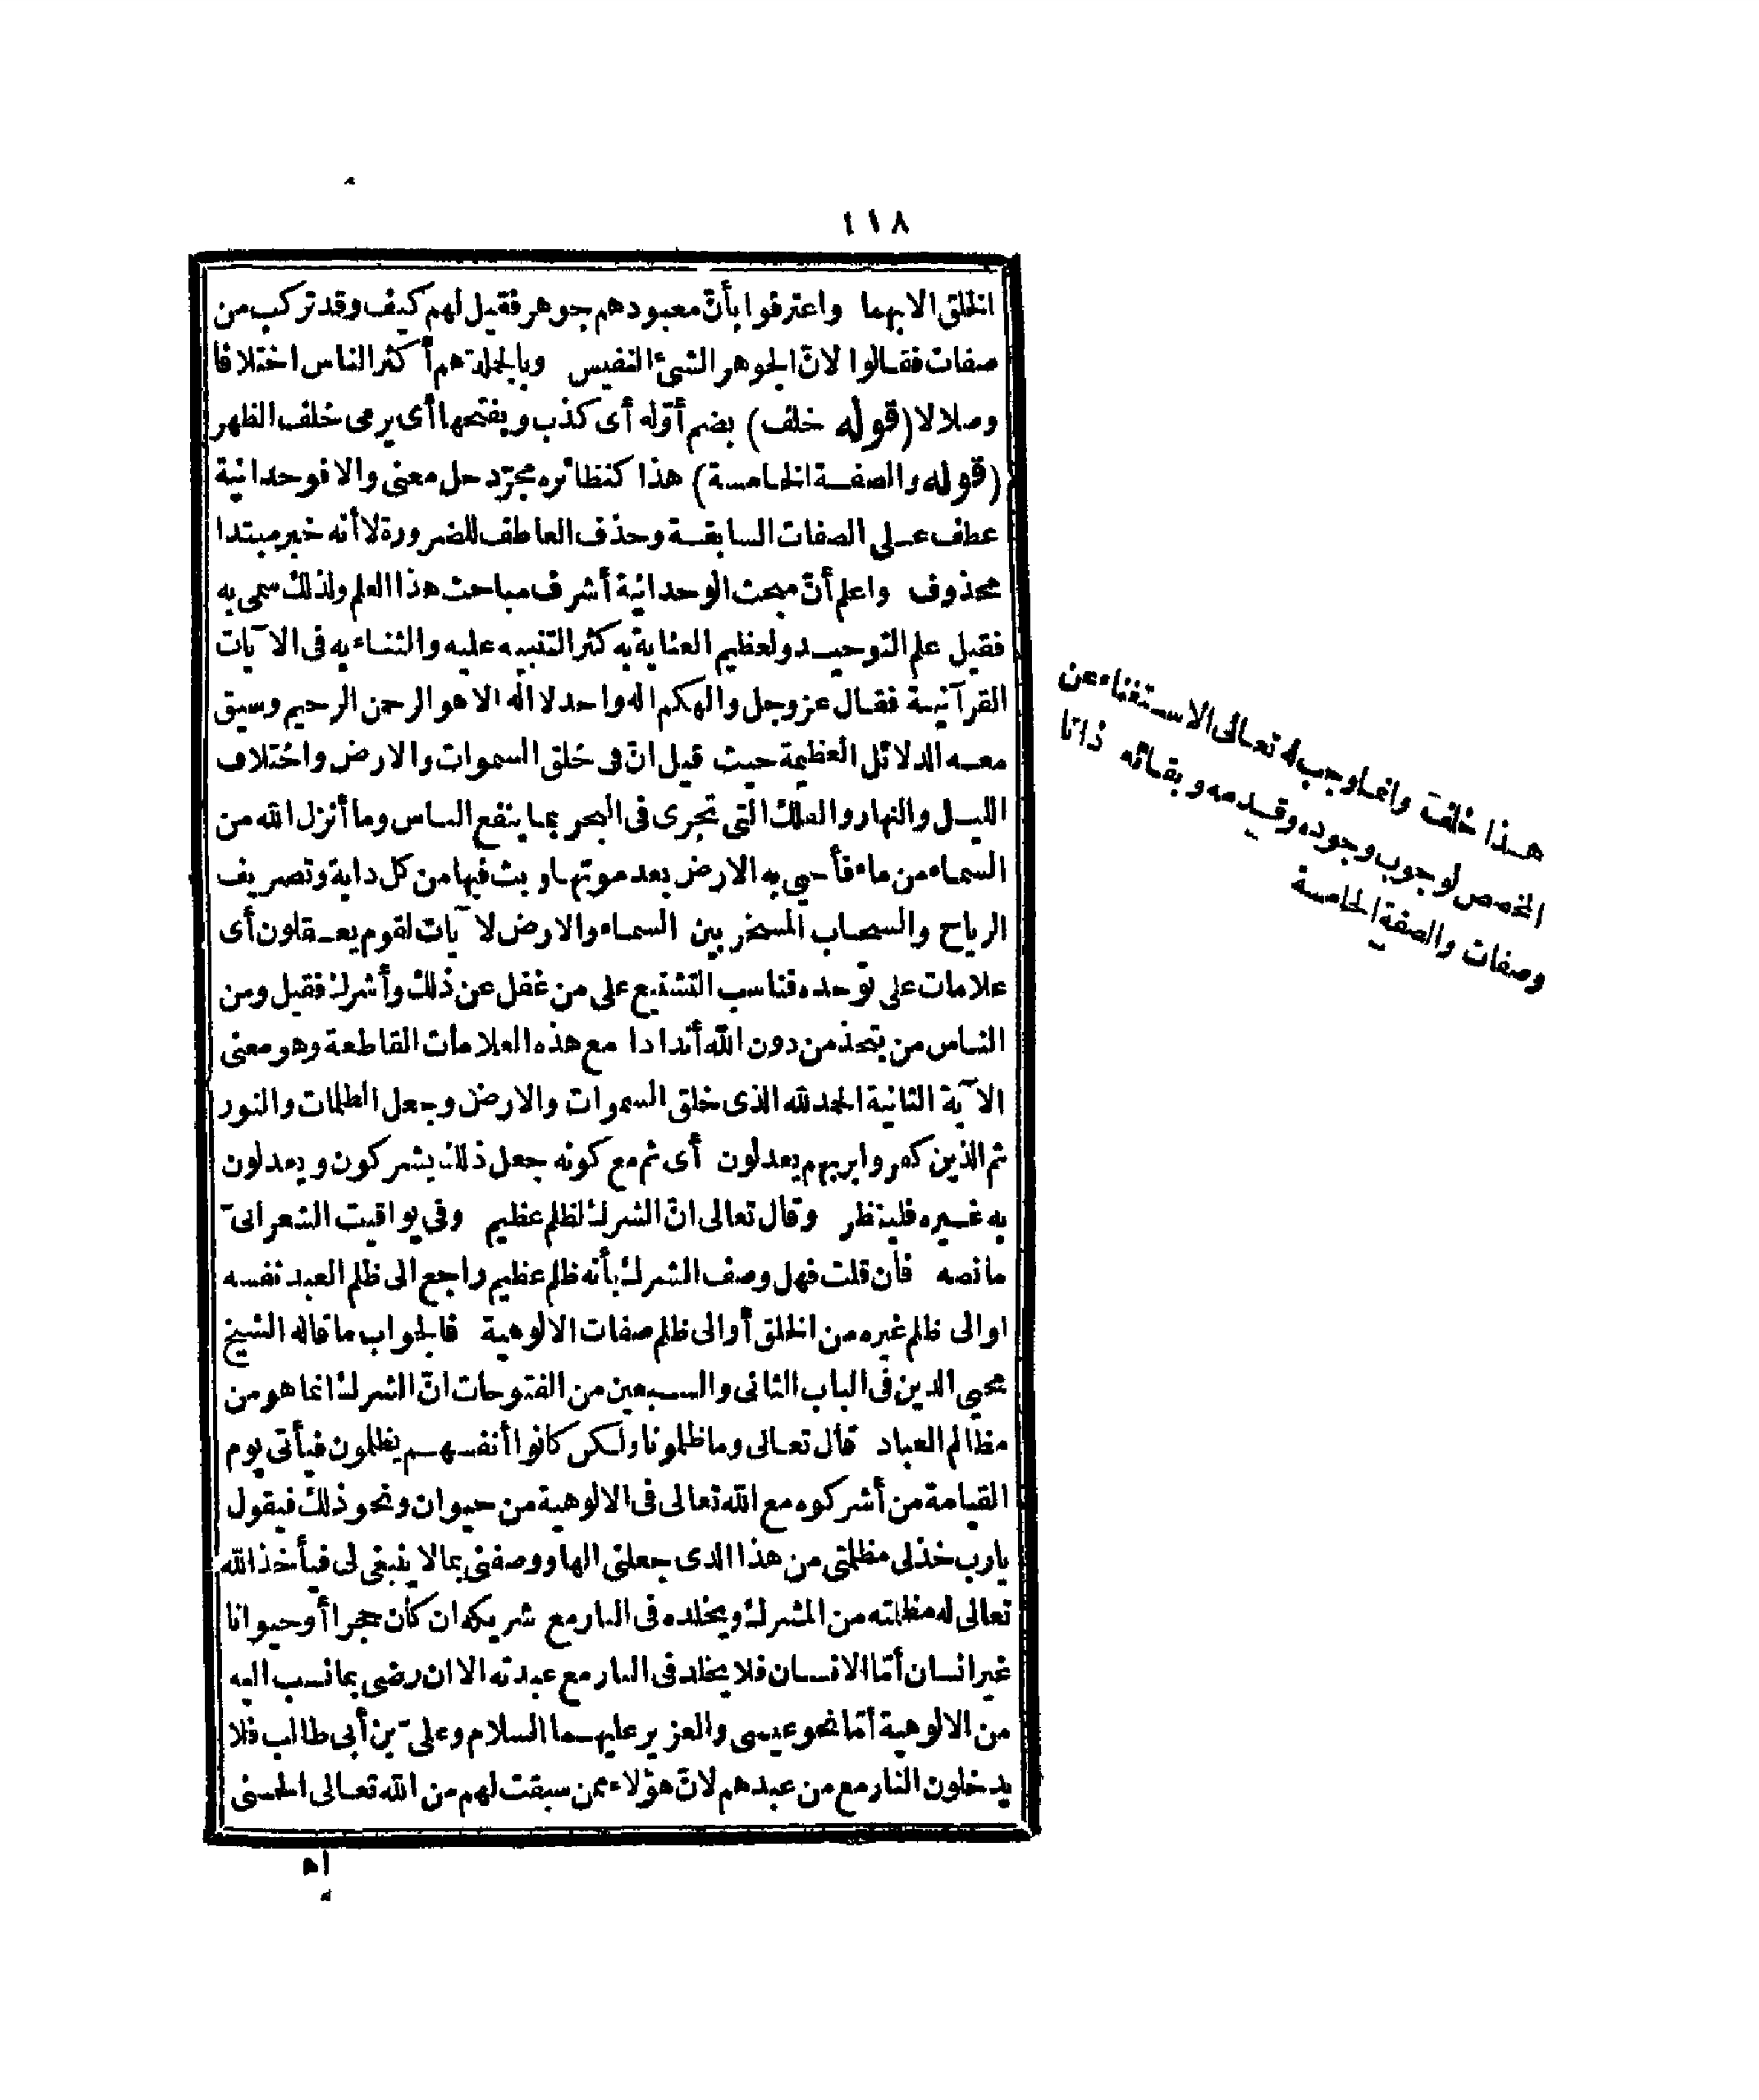 ١١٨
الخلق الا بهما واعترفوا بأنّ معبودهم جوهر فقيل لهم كيف وقد تركب من
صفات فقالوا لانّ الجوهر الشئ النفيس وبالجلة هم أكثر الناس اختلافا
وصلالا (قوله خلف) بضم أوّله أى كذب وبفتحها أى يرمى خلف الظهر
(قوله والصفة الخامسة) هذا كنظائره مجرّد حل معنى والا فوحدانية
عطف على الصفات السابقة وحذف العاطف للضرورة لا أنه خبر مبتدا
محذوف واعلم أنّ مبحث الوحدانية أشرف مباحث هذا العلم ولذلك سمى به
فقيل علم التوحيد ولعظيم العناية به كثر التنبيه عليه والثناء به فى الآيات
القرآنية فقال عز وجل والهكم اله واحد لا اله الا هو الرحمن الرحيم وسيق
معه الدلائل العظيمة حيث قيل انّ فى خلق السموات والارض واختلاف
الليل والنهار والفلك التى تجرى فى البحر بما ينفع الناس وما أنزل الله من
السماء من ماء فأحيى به الارض بعد موتها وبث فيها من كل دابة وتصريف
الرياح والسحاب المسخر بين السماء والارض لآيات لقوم يعقلون أى
علامات على توحده فناسب التشنيع على من غفل عن ذلك وأشرك فقيل ومن
الناس من يتخذ من دون الله أندادا مع هذه العلامات القاطعة وهو معنى
الآية الثانية الحمد لله الذى خلق السموات والارض وجعل الظلمات والنور
ثم الذين كفروا بربهم يعدلون أى ثم مع كونه جعل ذلك يشركون ويعدلون
به غيره فلينظر وقال تعالى انّ الشرك لظلم عظيم وفى يواقيت الشعرانىّ
مانصه فان قلت فهل وصف الشرك بأنه ظلم عظيم راجع الى ظلم العبد نفسه
او الى ظلم غيره من الخلق أو الى ظلم صفات الالوهية فالجواب ما قاله الشيخ
محيى الدين فى الباب الثانى والسبعين من الفتوحات انّ الشرك انما هو من
مظالم العباد قال تعالى وما ظلمونا ولكن كانوا أنفسهم يظلمون فيأتى يوم
القيامة من أشركوه مع الله تعالى فى الالوهية من حيوان ونحو ذلك فيقول
يارب خذلى مظلمتى من هذا الذى جعلنى الها ووصفنى بما لا ينبغى لى فيأخذ الله
تعالى له مظلمته من المشرك ويخلده فى النار مع شريكه ان كان حجرا أو حيوانا
غير انسان أمّا الانسان فلا يخلد فى النار مع عبدته الا ان رضى بما نسب اليه
من الالوهية أمّا نحو عيسى والعزير عليهما السلام وعلىّ بن أبى طالب فلا
يدخلون النار مع من عبدهم لانّ هؤلاء ممن سبقت لهم من الله تعالى الحسنى
اه
هذا خلف وانما وجب له تعالى الاستغناء عن
المخصص لوجوب وجوده وقدمه وبقائه ذاتا
وصفات والصفة الخامسة